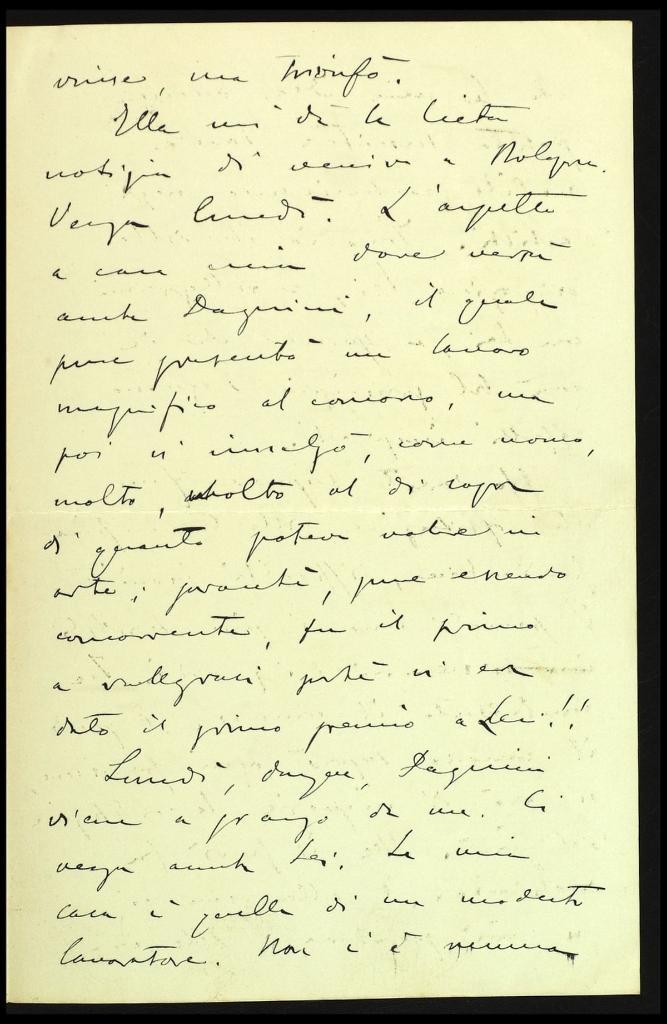 vinse, ma trionfò.
Ella mi dà la lieta
notizia di venire a Bologna.
Venga lunedì. L'aspetto
a casa mia dove verrà
anche Dagnini, il quale
pure presentò un lavoro
magnifico al concorso, ma
poi si innalzò, come uomo,
molto, molto al di sopra
di quanto poteva valere in
arte; poiché, pure essendo
concorrente, fu il primo
a rallegrarsi perché si era
dato il primo premio a Lei!!
Lunedì, dunque, Dagnini
viene a pranzo da me. Ci
venga anche Lei. La mia
casa è quella di un modesto
lavoratore. Non c'è nessuna